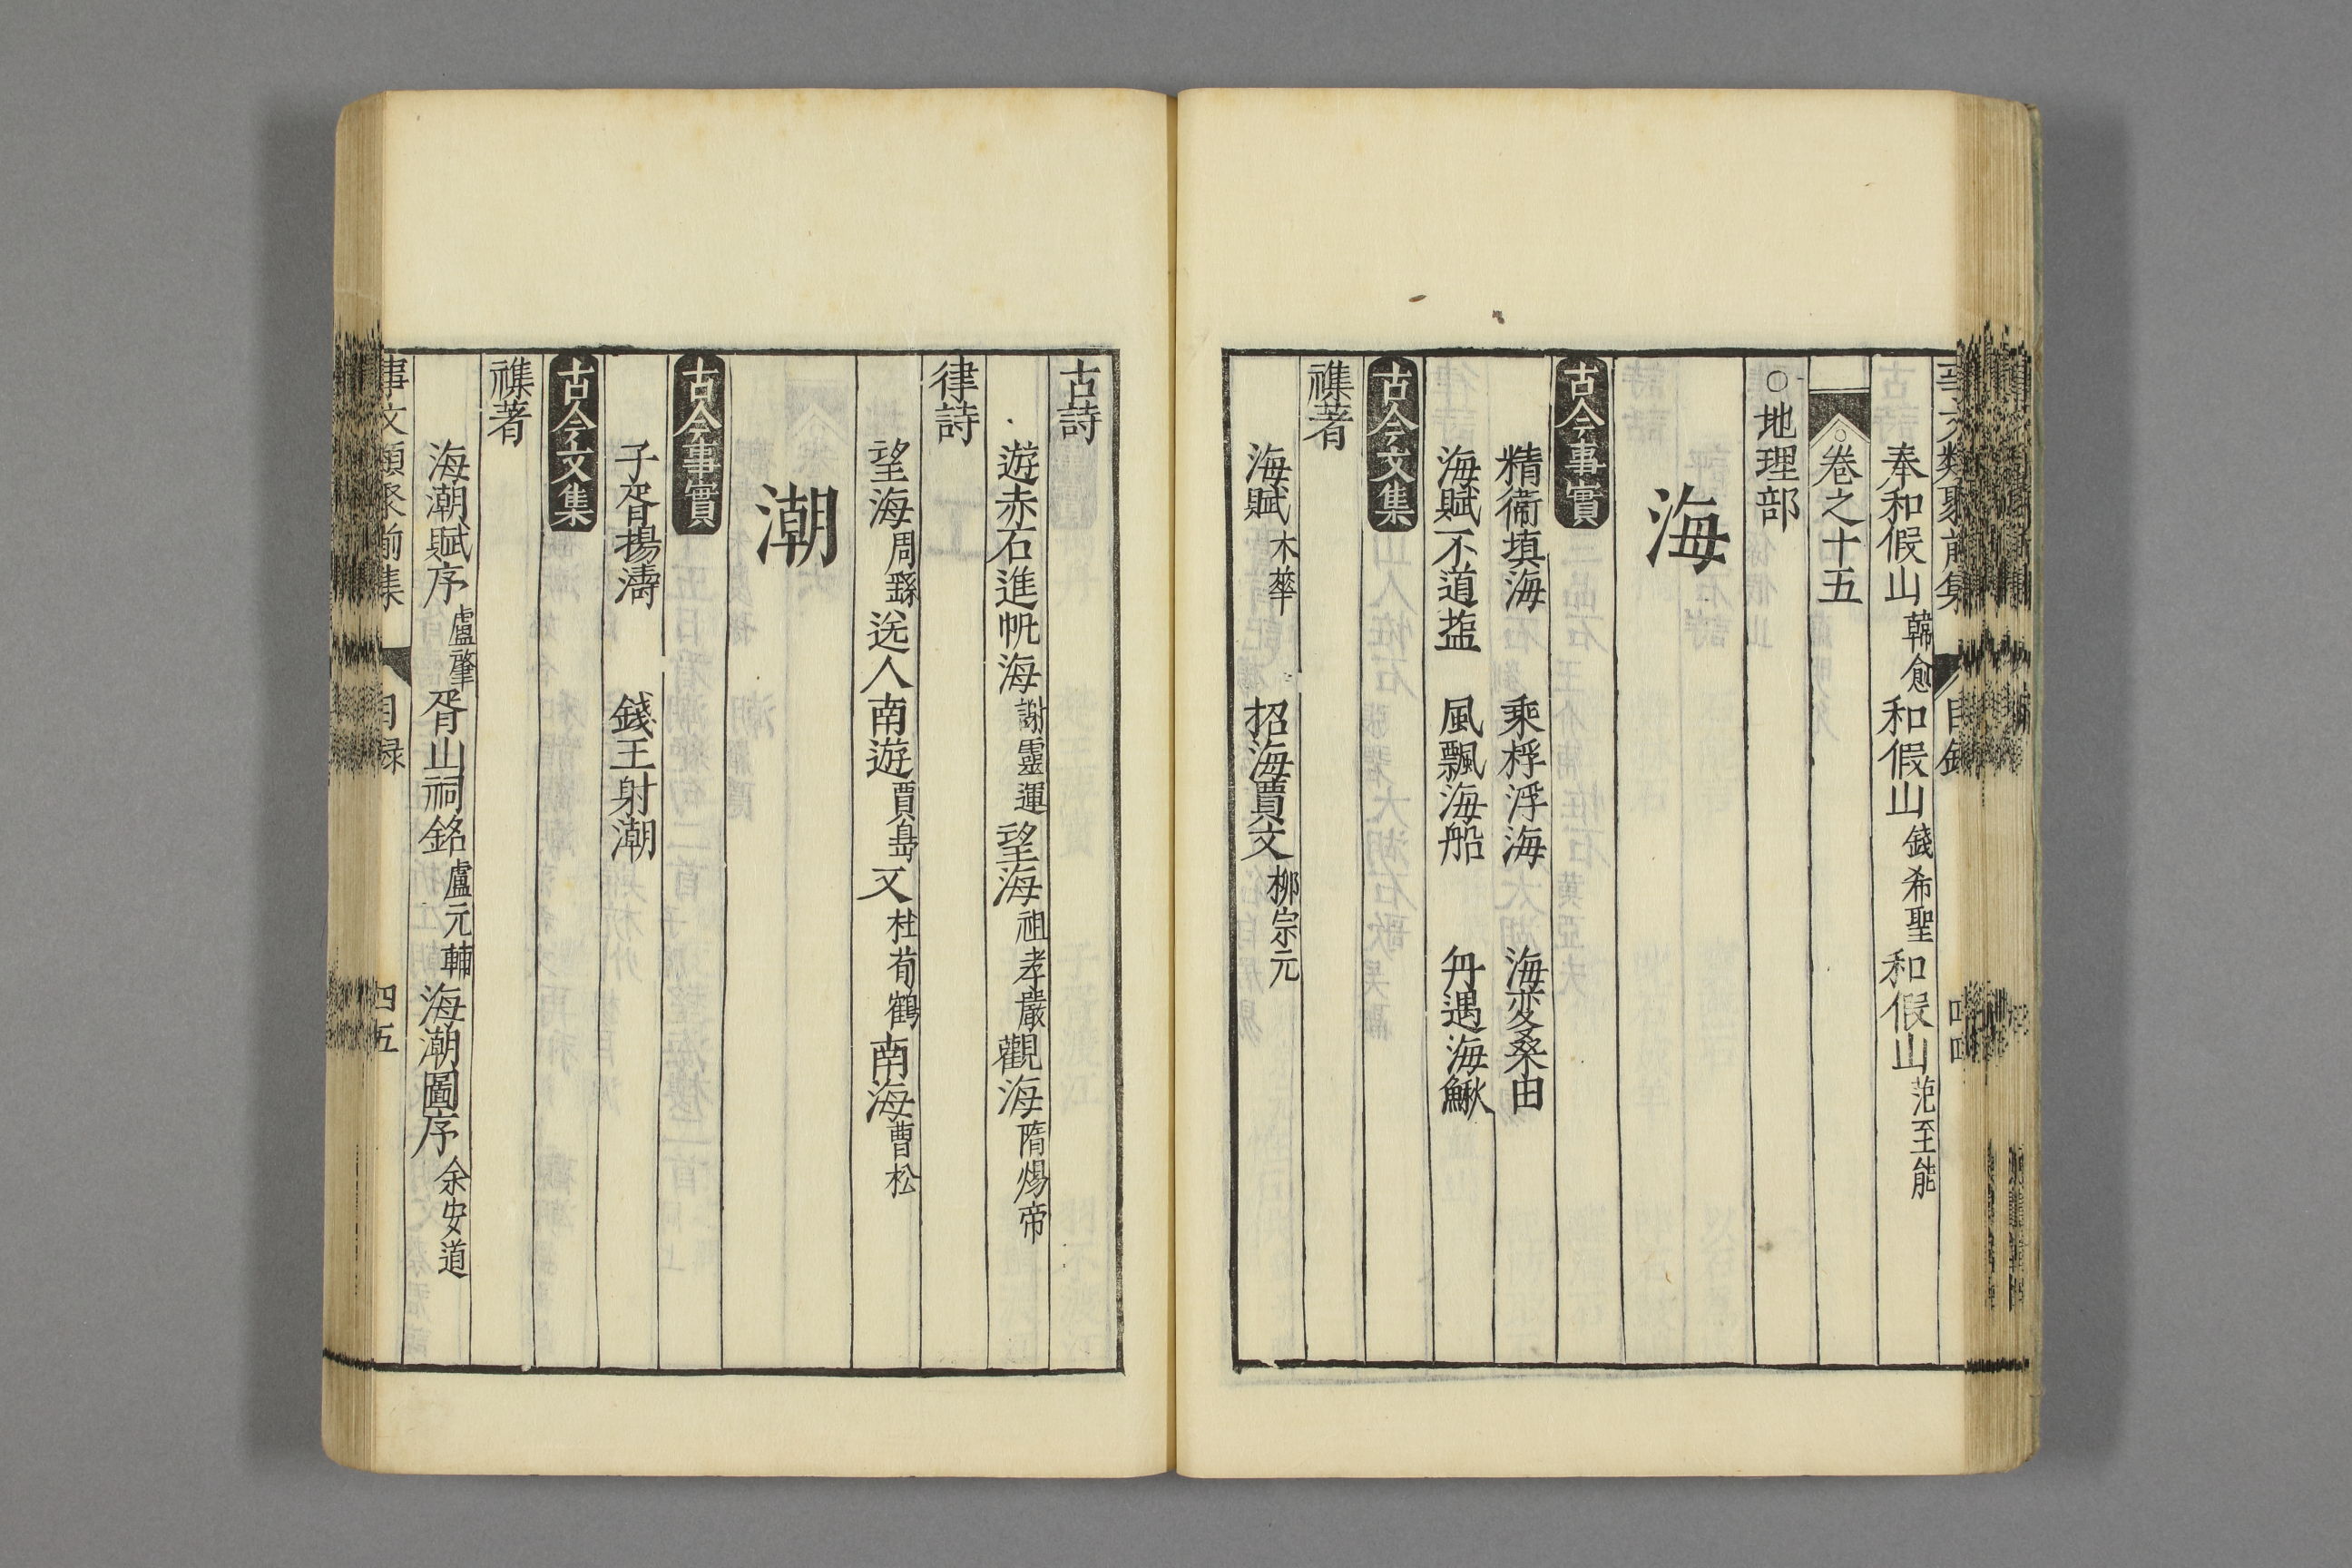 事文類聚前集 目録 四四
奉和假山 韓愈 和假山 錢希聖 和假山 范至能
○卷之十五
○地理部
海
古今事實
精衛填海 乘桴浮海 海変桑田
海賦不道塩 風飄海船 舟遇海鰍
古今文集
襍著
海賦 木華 招海賈文 栁宗元
古詩
遊赤石進帆海 謝靈運 望海 祖孝嚴 觀海 隋煬帝
律詩
望海 周繇 送人南遊 賈島 又 杜荀鶴 南海 曹松
潮
古今事實
子胥揚濤 錢王射潮
古今文集
襍著
海潮賦序 盧肇 胥山祠銘 盧元輔 海潮圖序 余安道
事文類聚前集 目録 四五